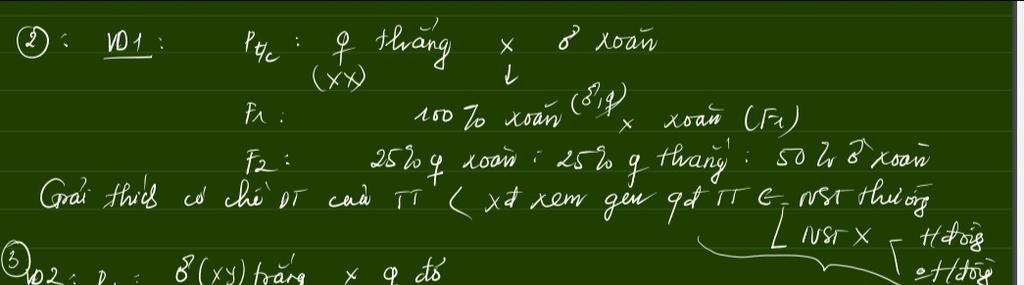 ②: VD1: Pt/c: ♀ thẳng × ♂ xoăn
(XX) ↓
F1: 100% xoăn (♂,♀) × xoăn (F1)
F2: 25% ♀ xoăn : 25% ♀ thẳng : 50% ♂ xoăn
Giải thích cơ chế DT của TT < xđ xem gen qđ TT ∈ NST thường
NST X tđồng
③ VD2: P : ♂ (XY) trắng × ♀ đỏ